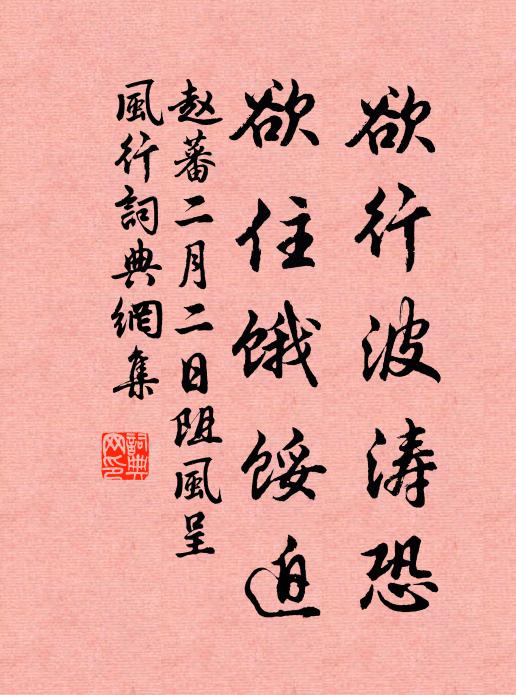 欲行波涛恐
欲住饿馁迫
赵蕃二月二日阻風呈
風行詞典網集
詞典
网印